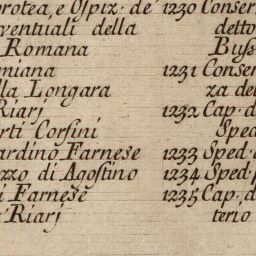 orotea, e Ospiz. de' 1230 Conser
ventuali della detto
Romana Buss
miana 1231 Conser
lla Longara za del
Riarj 1232 Cap. d
rti Corsini Sped
ardino Farnese 1233 Sped.
zzo di Agostino 1234 Sped.
i Farnese 1235 Cap. d
Riarj terio